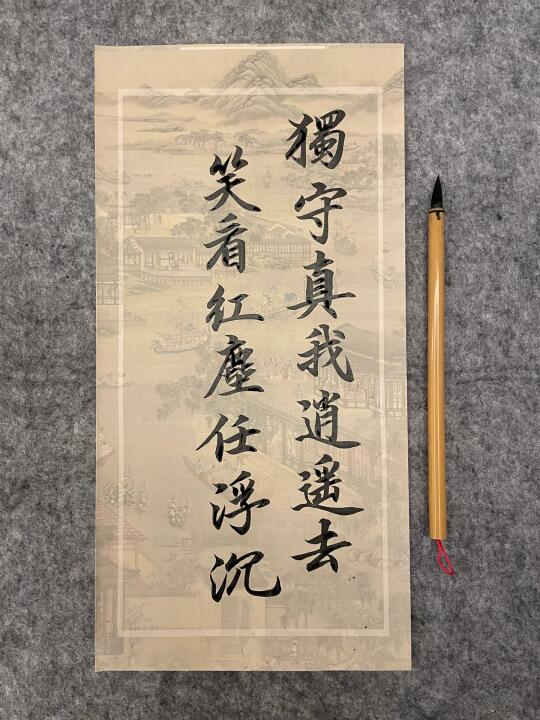 獨守真我逍遥去
笑看紅塵任浮沉